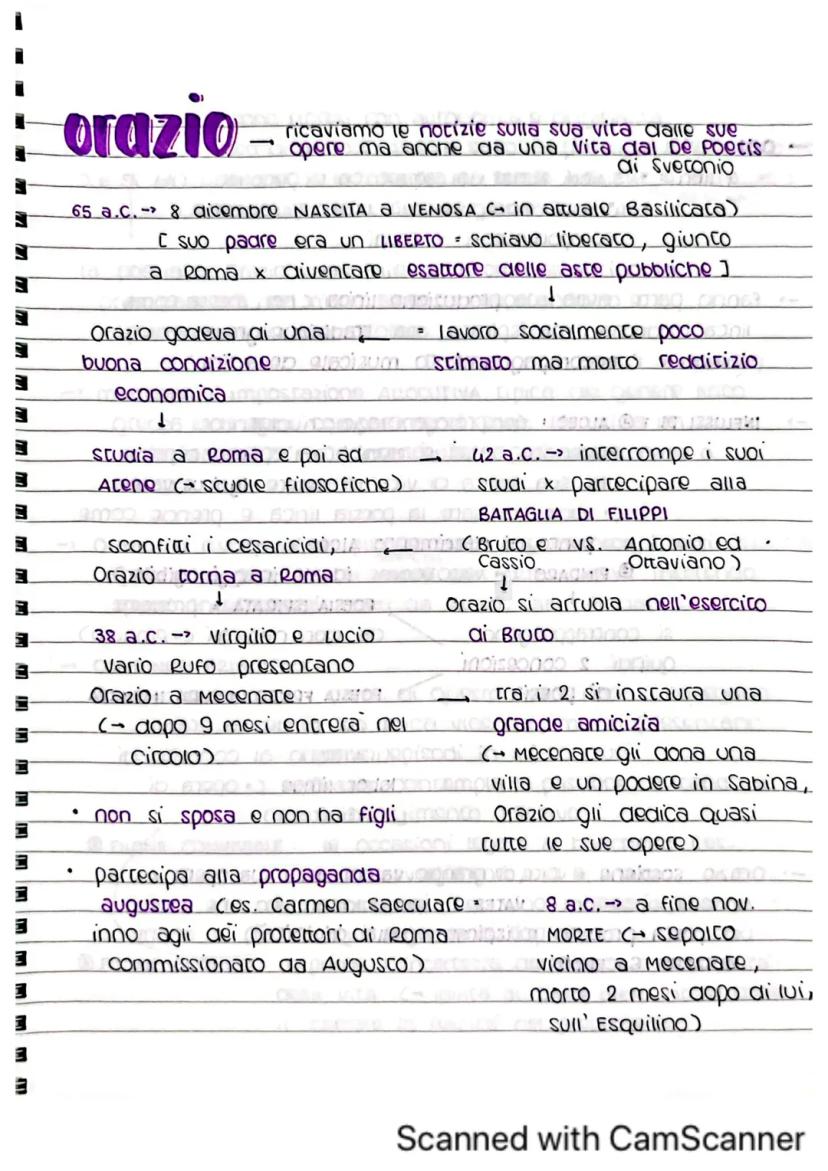 orazio → ricaviamo le notizie sulla sua vita dalle sue
opere ma anche da una vita dal De Poetis
di Svetonio
65 a.C. -> 8 dicembre NASCITA a VENOSA (→ in attuale Basilicata)
[ suo padre era un LIBERTO = schiavo liberato, giunto
a Roma x diventare esattore delle aste pubbliche ]
↓
= lavoro socialmente poco
stimato ma molto redditizio
←
Orazio godeva di una
buona condizione
economica
↓
studia a Roma e poi ad
Atene (→ scuole filosofiche)
→ 42 a.C. -> interrompe i suoi
studi x partecipare alla
BATTAGLIA DI FILIPPI
(Bruto e Cassio vs. Antonio ed Ottaviano)
↓
Orazio si arruola nell'esercito
di Bruto
←
sconfitti i Cesaricidi,
Orazio torna a Roma
↓
38 a.C. -> Virgilio e Lucio
Vario Rufo presentano
Orazio a Mecenate
(→ dopo 9 mesi entrerà nel
circolo)
→ tra i 2 si instaura una
grande amicizia
(→ Mecenate gli dona una
villa e un podere in Sabina,
Orazio gli dedica quasi
tutte le sue opere)
• non si sposa e non ha figli
• partecipa alla propaganda
augustea (es. Carmen Saeculare =
inno agli dèi protettori di Roma
commissionato da Augusto)
8 a.C. -> a fine nov.
MORTE (→ sepolto
vicino a Mecenate,
morto 2 mesi dopo di lui,
sull' Esquilino)
Scanned with CamScanner